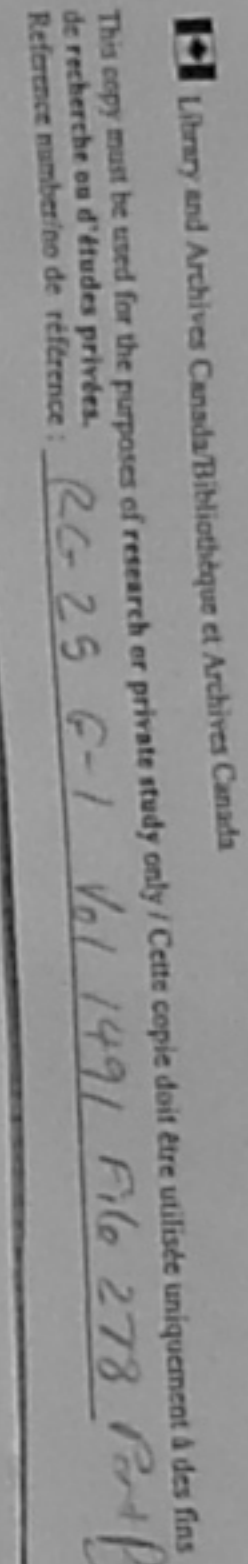 Library and Archives Canada/Bibliothèque et Archives Canada
This copy must be used for the purposes of research or private study only / Cette copie doit être utilisée uniquement à des fins
de recherche ou d'études privées.
Reference number/no de référence : RG 25 G-1 Vol 1491 File 278 Part